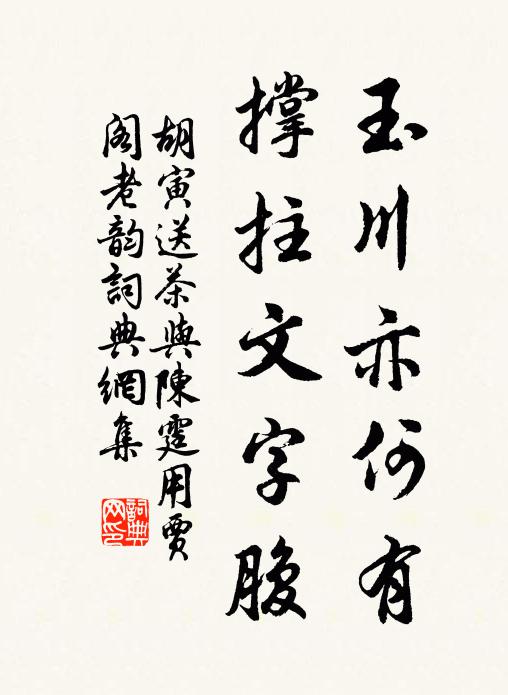 玉川亦何有
撑拄文字腹
胡寅送茶與陳霆用賈
閣老韵詞典網集
詞典
网印